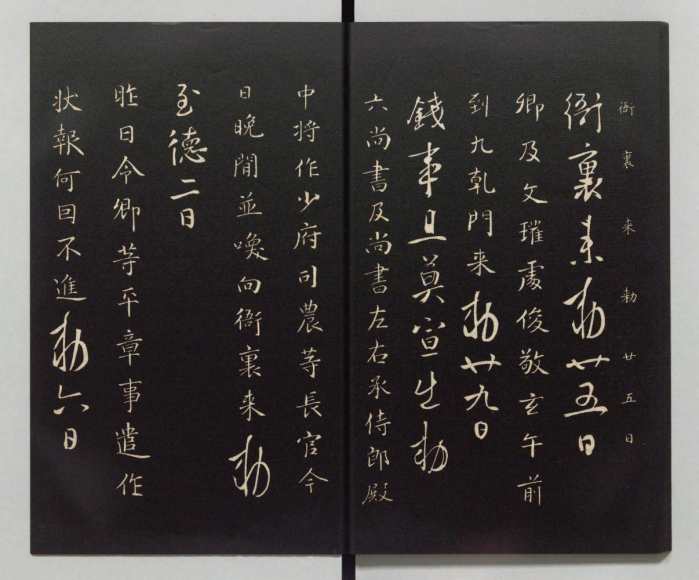 衙裏来勅廿五日
衙裏来勅廿五日
卿及文瓘處俊敬玄午前
到九乹門来勅廿九日
錢事且莫宣生勅
六尚書及尚書左右丞侍郎殿
中将作少府司農等長官今
日晚閒並喚向衙裏来勅
至徳二日
昨日令卿等平章事遣作
状報何因不進勅六日